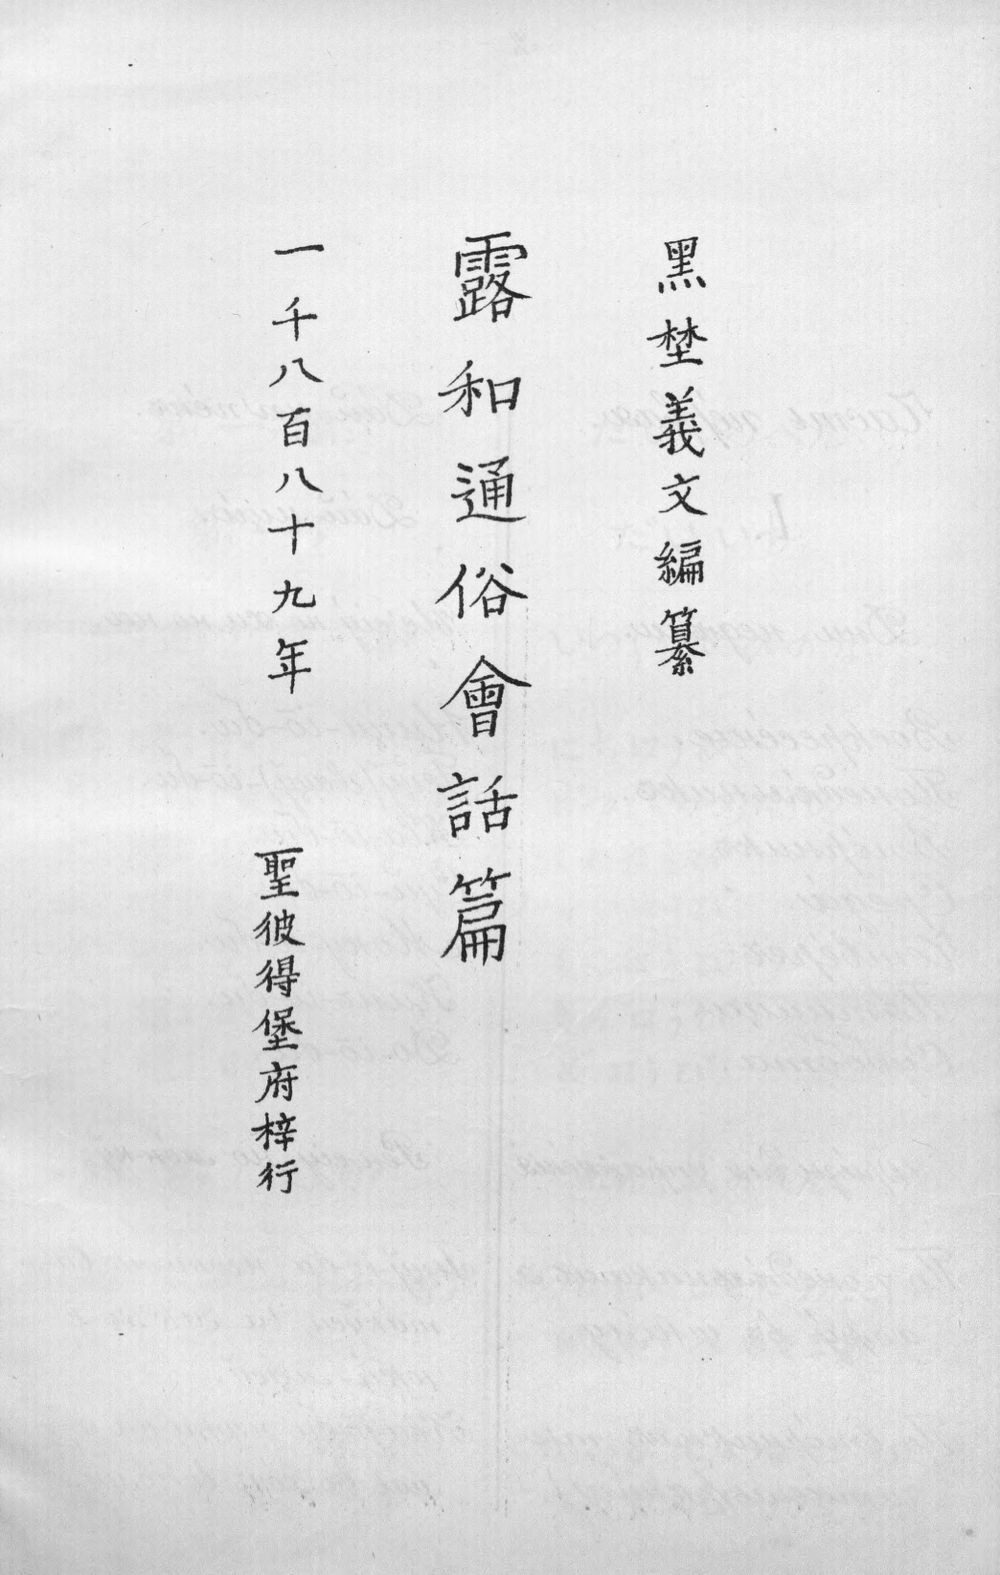 黑埜義文編纂
露和通俗會話篇
一千八百八十九年
聖彼得堡府梓行